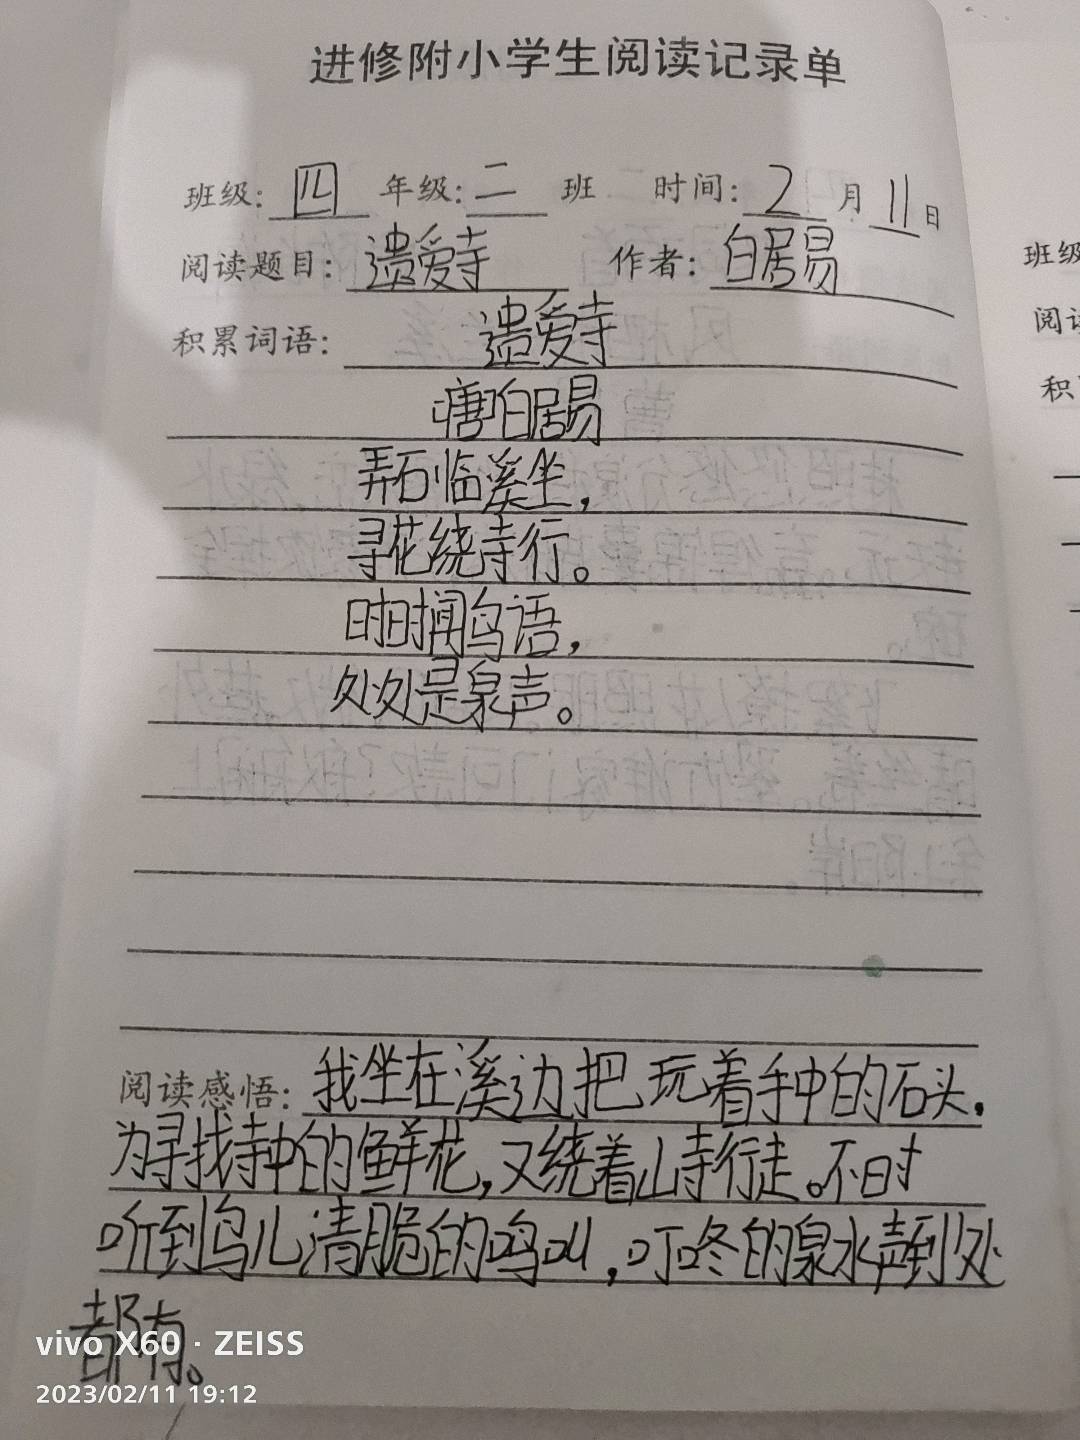 进修附小学生阅读记录单
班级: 四 年级: 二 班 时间: 2 月 11 日
阅读题目: 遗爱寺 作者: 白居易
积累词语: 遗爱寺
唐白居易
弄石临溪坐,
寻花绕寺行。
时时闻鸟语,
处处是泉声。
阅读感悟: 我坐在溪边把玩着手中的石头.
为寻找寺中的鲜花,又绕着山寺行走。不时
听到鸟儿清脆的鸣叫,叮咚的泉水声到处
都有。
vivo X60 · ZEISS
2023/02/11 19:12
班级
阅读
积